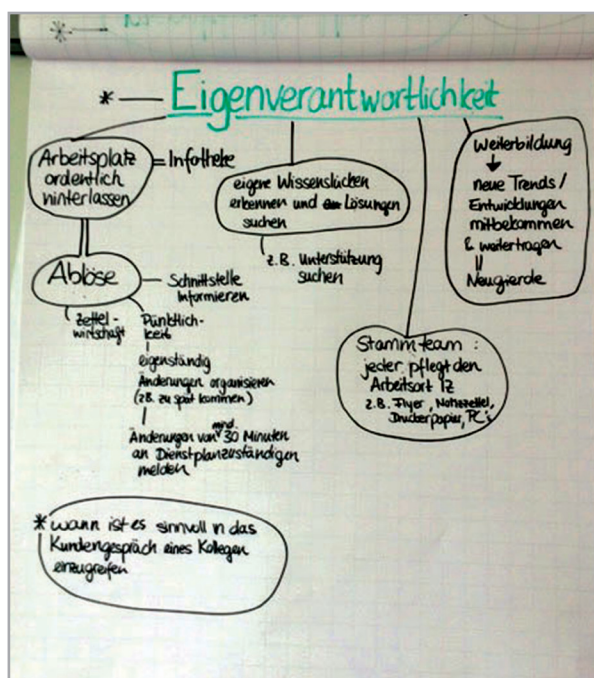 * — Eigenverantwortlichkeit
Arbeitsplatz
ordentlich
hinterlassen
= Infotheke
Ablöse
Zettel-
wirtschaft
Schnittstelle
Informieren
Pünktlich-
keit
eigenständig
Änderungen organisieren
(z.B. zu spät kommen)
mind.
Änderungen von 30 Minuten
an Dienstplanzuständigen
melden
eigene Wissenslücken
erkennen und Lösungen
suchen
z.B. Unterstützung
suchen
Stammteam:
jeder pflegt den
Arbeitsort IZ
z.B. Flyer, Notizzettel,
Druckerpapier, PC's
Weiterbildung
neue Trends/
Entwicklungen
mitbekommen
& weitertragen
=
Neugierde
* wann ist es sinnvoll in das
Kundengespräch eines Kollegen
einzugreifen